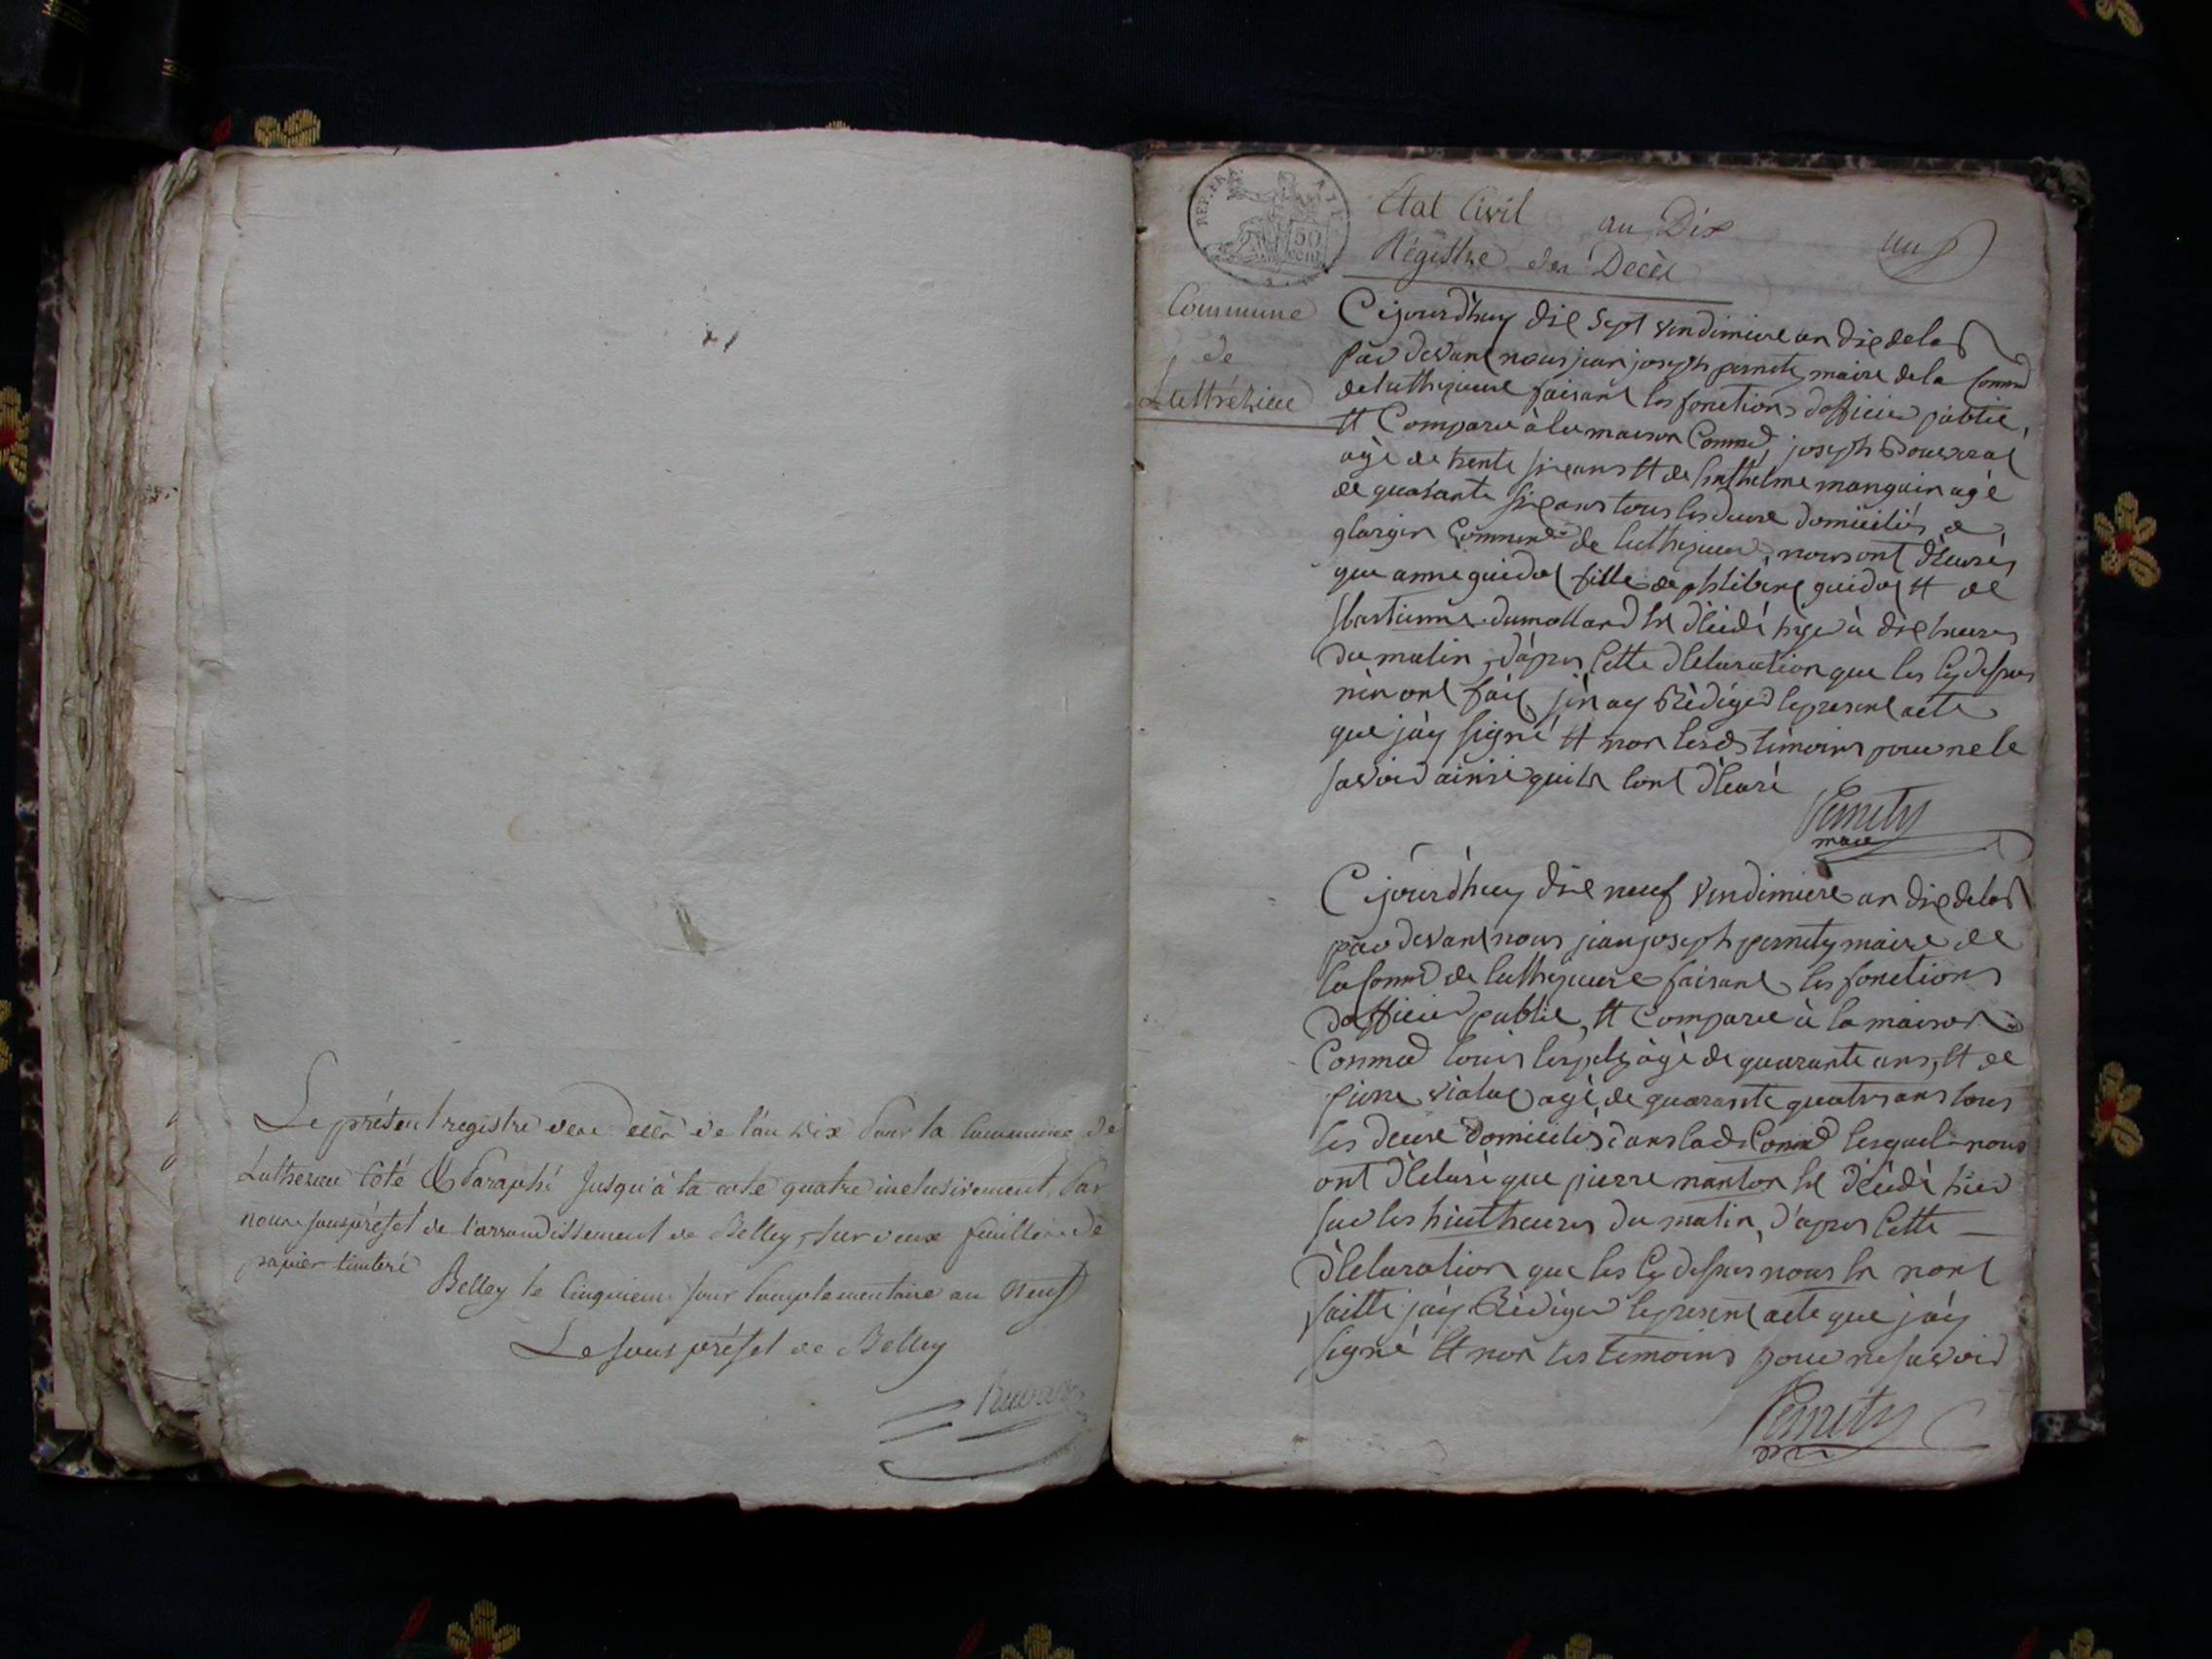 Le présent registre des décès de l'an dix pour la Commune de
Luthezieu Coté & Paraphé Jusqu'à la cote quatre inclusivement, Par
nous souspréfet de l'arrondissement de Belley, sur deux feuilles de
papier timbré
Belley le Cinquieme jour Complementaire an Neuf
Le sous préfet de Belley
REP. FRA.
50
cent
Etat Civil an Dix
Régistre des Decès
un
Commune
de
Cejourd'huy dix sept vendimiere an dix de la R
par devant nous jean joseph pernety maire de la Comm
de luthezieux faisant les fonctions d'officier public,
et Comparu à la maison Comme, joseph
agé de trente six ans et de anthelme mangain agé
de quarante six ans tous les deux domicilies a
Commune de luthezieux, nous ont déclaré
que anne guidot fille de philibert guidot et de
dumollard et décédé hyer à dix heures
du matin, d'apres Cette déclaration que les Cy dessus
m'en ont fait, j'en ay Rèdiger le present acte
que j'ay signé et non lesds témoins pour ne le
savoir ainsi qu'ils l'ont déclaré
Pernety
maire
Cejourd'huy dix neuf vendimiere an dix de la R
par devant nous jean joseph pernety maire de
la Comme de luthezieux faisant les fonctions
d'officier public, et Comparu à la maison
Comme louis agé de quarante ans, et de
pierre agé de quarante quatre ans tous
les deux domicilies dans lade Comme lesquels nous
ont déclaré que pierre nanton et décédé hier
sur les huit heures du matin, d'apres Cette
déclaration que les Cy dessus nous en n'ont
faitte j'ay Rèdiger le present acte que j'ay
signé et non les temoins pour ne savoir
Pernety